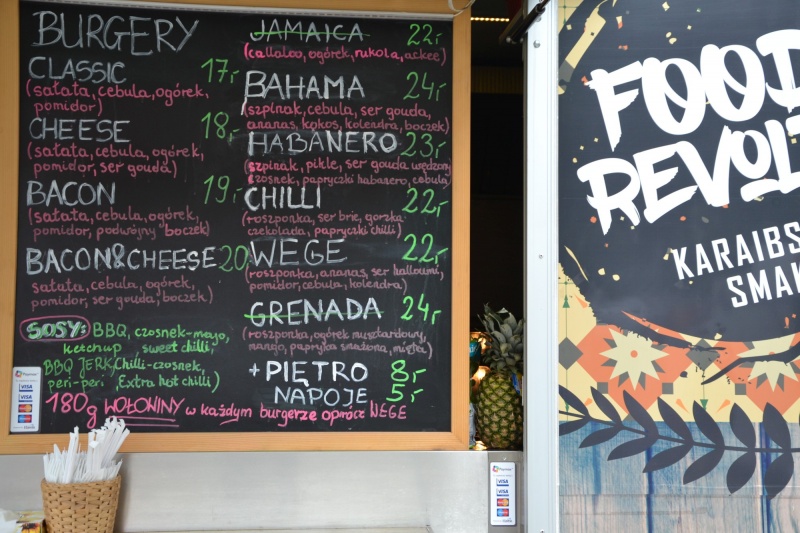 BURGERY
CLASSIC 17,-
(sałata, cebula, ogórek,
pomidor)
CHEESE 18,-
(sałata, cebula, ogórek,
pomidor, ser gouda)
BACON 19,-
(sałata, cebula, ogórek,
pomidor, podwójny boczek)
BACON&CHEESE 20
sałata, cebula, ogórek,
pomidor, ser gouda, boczek)
SOSY: BBQ, czosnek-mayo,
ketchup sweet chilli,
BBQ JERK, Chilli-czosnek,
peri-peri, Extra hot chilli)
JAMAICA 22,-
(callaloo, ogórek, rukola, ackee)
BAHAMA 24,-
(szpinak, cebula, ser gouda,
ananas, kokos, kolendra, boczek)
HABANERO 23,-
(szpinak, pikle, ser gouda wędzony
czosnek, papryczki habanero, cebula)
CHILLI 22,-
(roszponka, ser brie, gorzka
czekolada, papryczki chilli)
WEGE 22,-
(roszponka, ananas, ser halloumi,
pomidor, cebula, kolendra)
GRENADA 24,-
(roszponka, ogórek musztardowy,
mango, papryka smażona, mięta)
+ PIĘTRO 8,-
NAPOJE 5,-
180g WOŁOWINY w każdym burgerze oprócz WEGE
VISA
VISA
FOOD
REVOLT
KARAIBS
SMAK
VISA
VISA